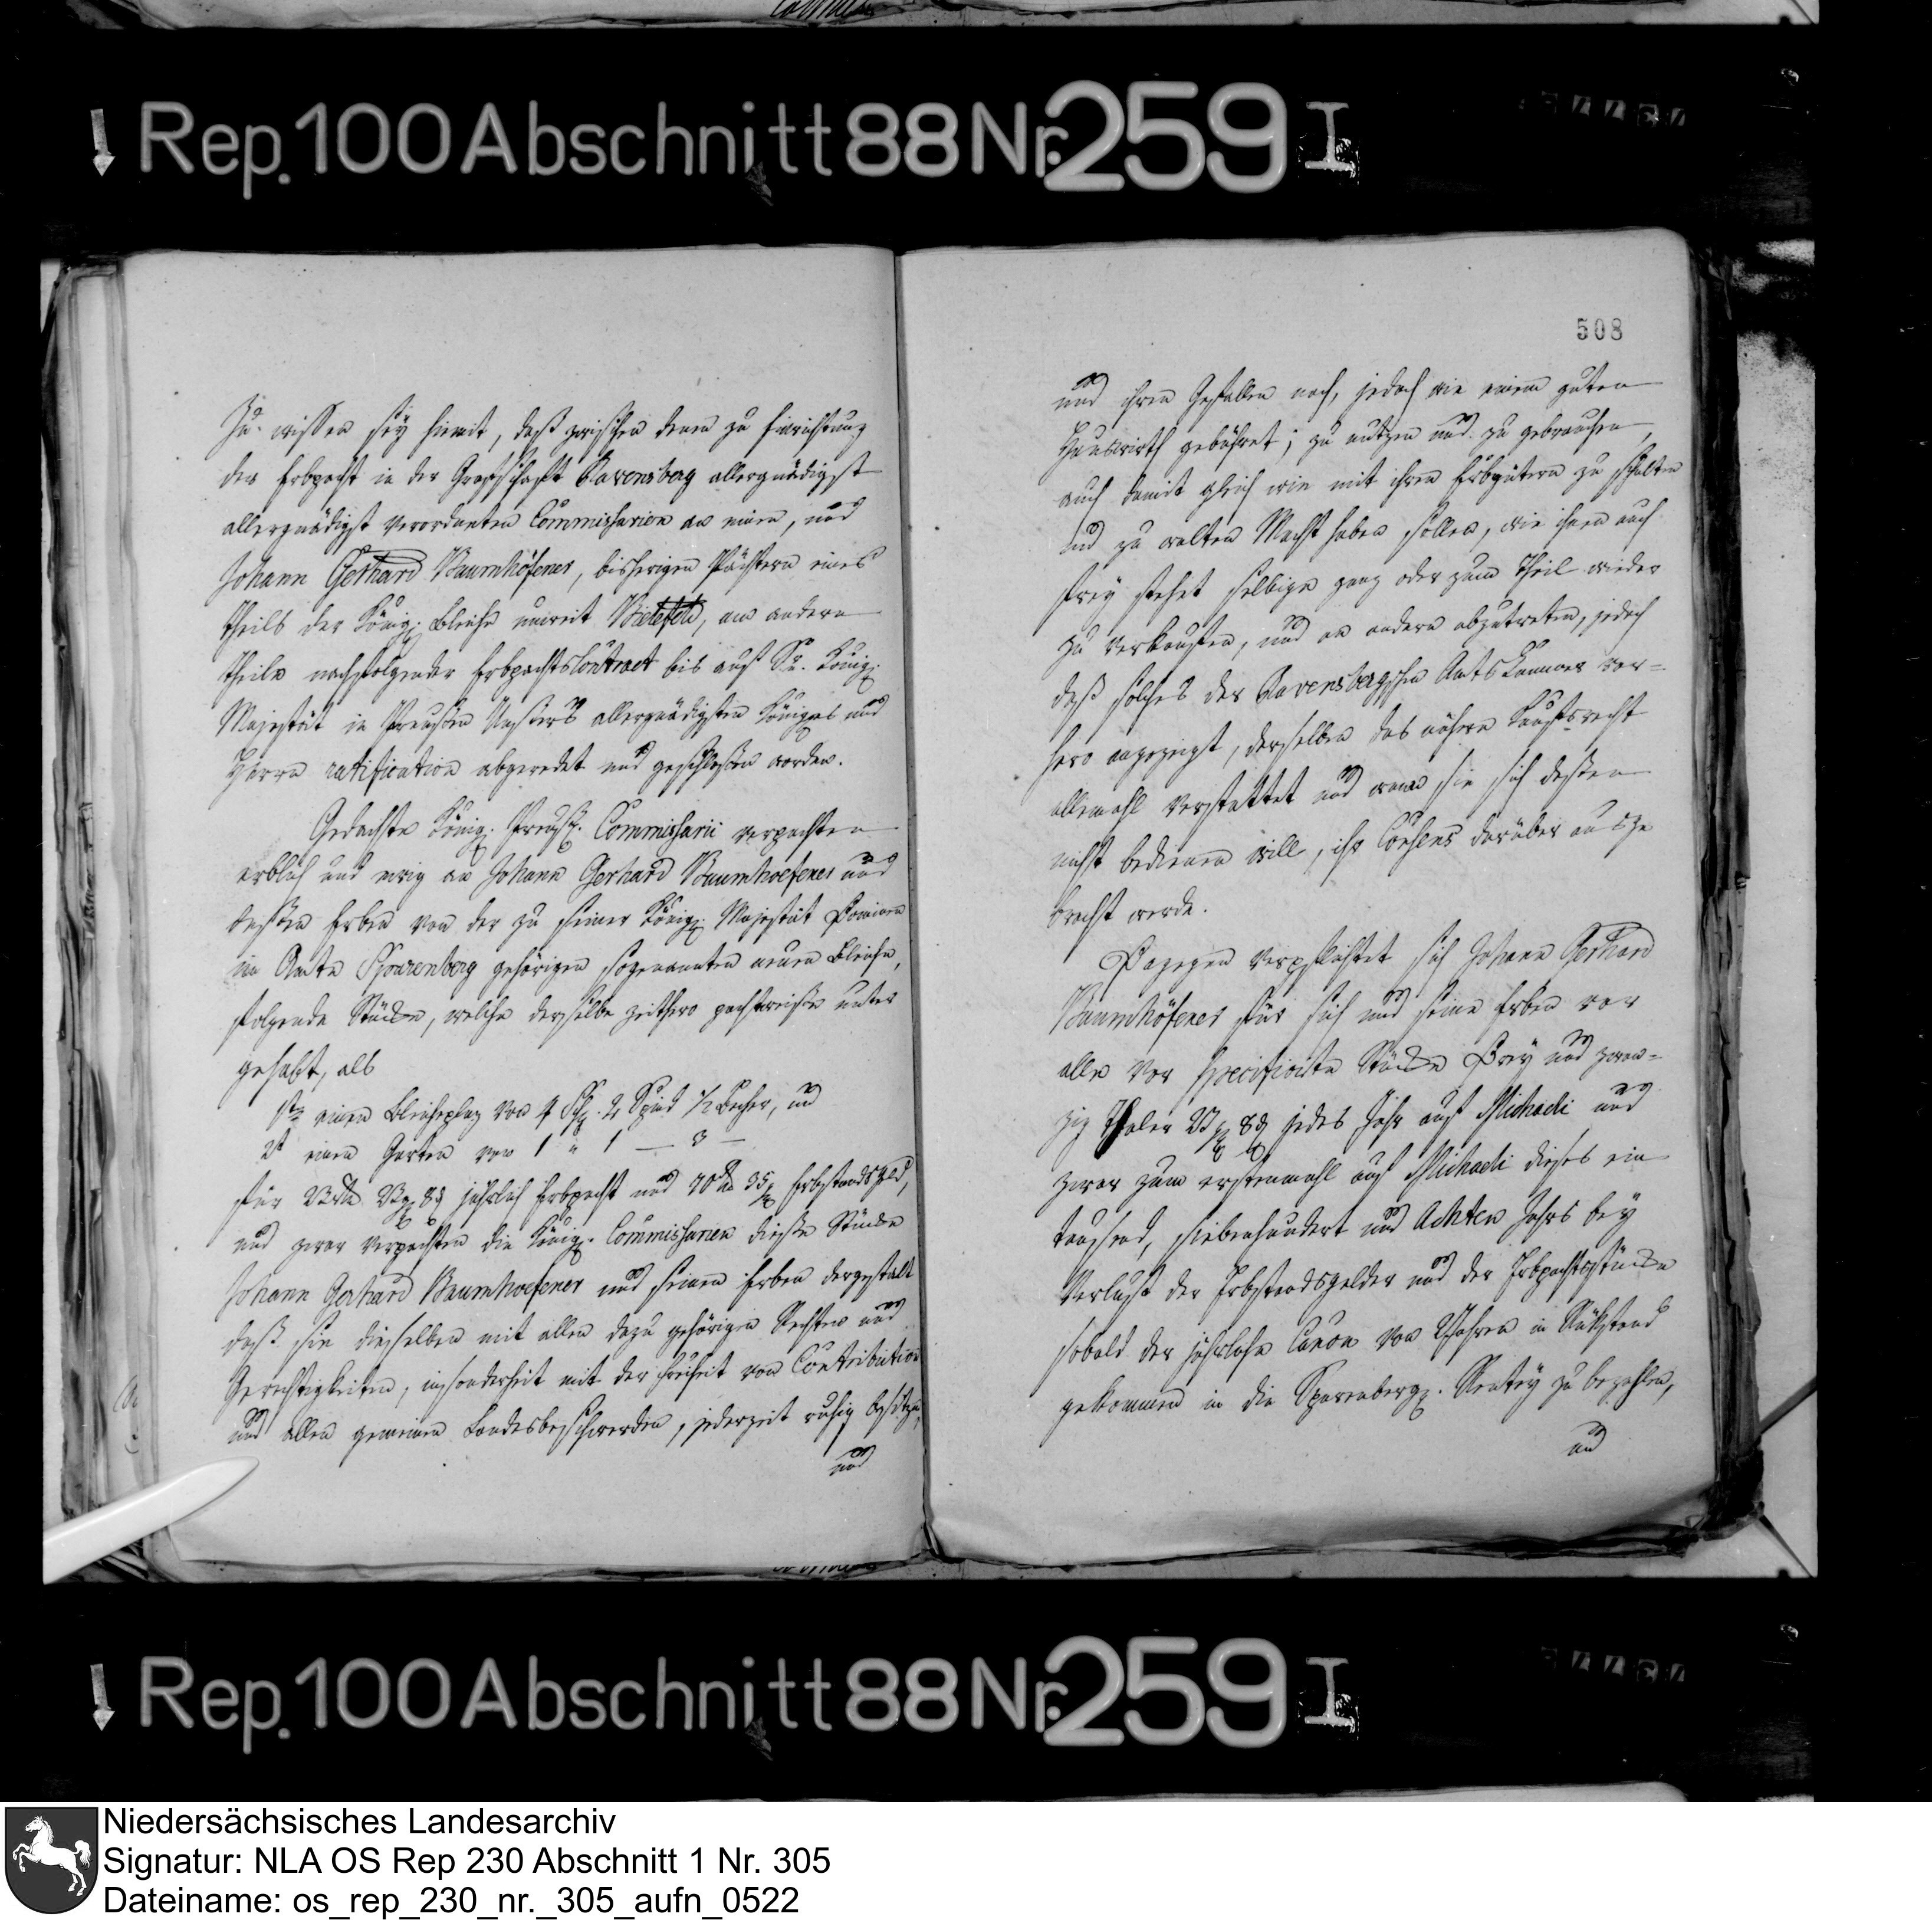 Rep. 100 Abschnitt 88 Nr. 259 I
Zu wissen sey hiemit, daß zwischen denen zu Einrichtung
der Erbpacht in der Graffschafft Ravensberg allergnädigst
allergnädigst verordneten Commissarien an einen, und
Johann Gerhard Baumhöfener, bisherigen Pächtern eines
theils der Königl. Bleiche unweit Bielefeld, am andern
theile nachfolgender Erbpachts Contract bis auf Sr. Königl.
Majestät in Preußen Unßers allergnädigsten Königes und
Herrn ratification abgeredet und geschloßen worden.
Gedachte Königl. Preuß. Commissarii verpachten
erblich und ewig an Johann Gerhard Baumhoefener und
deßen Erben von der zu seiner Königl. Majestät Domainen
im Amte Sparenberg gehörigen sogenannten neuen Bleiche,
folgende Stücke, welche derselbe zeithero pachtweise unter
gehabt, als
1st einen Bleicheplaz von 4 Schfl. 2 Spint ½ Becher, und
2t einen Garten von 1 " 1 — 3 —
für 23 rtl. 23 gl 8 d jährlich Erbpacht und 70 rtl. 35 gl Erbstandsgeld,
und zwar verpachten die Königl. Commissarien dieße Stücke
Johann Gerhard Baumhoefener und seinen Erben dergestalt
daß sie dieselben mit allen dazu gehörigen Rechten und
Gerechtigkeiten, insonderheit mit der Freiheit von Contribution
und allen gemeinen Landesbeschwerden, jederzeit ruhig besitzen,
und
508
und ihren Gefallen nach, jedoch wie einem guten
Hauswirth gebühret; zu nutzen und zu gebrauchen,
auch damit gleich wie mit ihren Erbgütern zu schalten
und zu walten Macht haben sollen, wie ihnen auch
frey stehet selbige ganz oder zum Theil wieder
zu verkauffen, und an andern abzutreten, jedoch
daß solches der Ravensbergschen Amts Kammer vor-
hero angezeigt, derselben das nähere Kauffsrecht
allemahl verstattet und wenn sie sich deßen
nicht bedienen will, ihr Consens darüber ausge
bracht werde.
Dagegen verpflichtet sich Johann Gerhard
Baumhöfener für sich und seine Erben vor
alle vor specificirte Stücke Drey und zwan-
zig Thaler 23 gl 8 d jedes Jahr auf Michaeli und
zwar zum erstenmahl auf Michaeli dieses ein
tausend, siebenhundert und Achten Jahrs bey
Verlust der Erbstandsgelder und der Erbpachtsstücke
sobald der jährliche Canon von 2 Jahren in Rükstand
gekommen in die Sparenbergl. Rentey zu bezahlen,
und
Rep. 100 Abschnitt 88 Nr. 259 I
Niedersächsisches Landesarchiv
Signatur: NLA OS Rep 230 Abschnitt 1 Nr. 305
Dateiname: os_rep_230_nr._305_aufn_0522